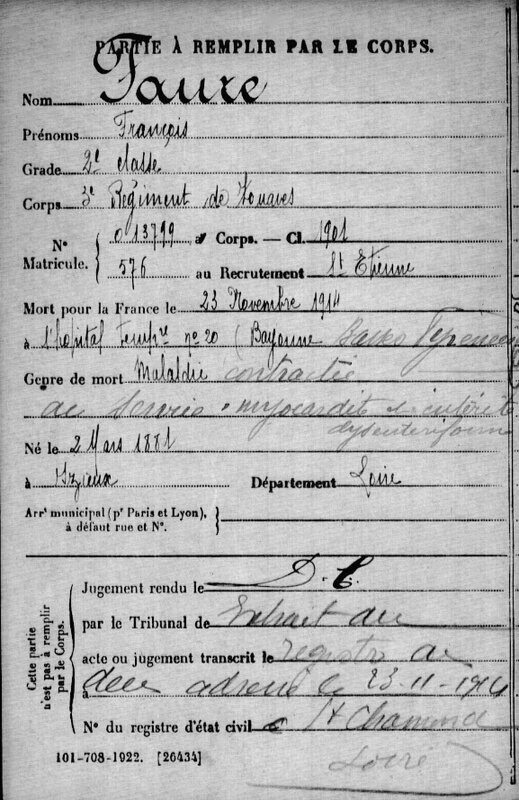 PARTIE À REMPLIR PAR LE CORPS.
Nom Faure
Prénoms François
Grade 2e classe
Corps 3e Régiment de Zouaves
N° Matricule. 013799 au Corps. — Cl. 1901
576 au Recrutement St Etienne
Mort pour la France le 23 Novembre 1914
à l'hôpital tempre no 20 (Bayonne Basses Pyrénées
Genre de mort Maladie contractée
au service myocardite et entérite
dysenteriforme
Né le 2 Mars 1881
à Izieux Département Loire
Arrt municipal (pr Paris et Lyon), à défaut rue et N°.
Cette partie n'est pas à remplir par le Corps.
Jugement rendu le D.C.
par le Tribunal de Extrait du
acte ou jugement transcrit le registre de
à décès adressé le 23-11-1914
N° du registre d'état civil St Chamond
Loire
101-708-1922. [26434]